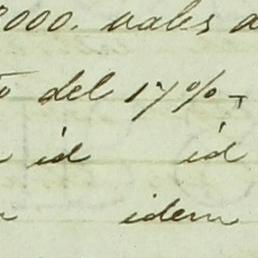 000. vales a
del 17%-
id id
idem